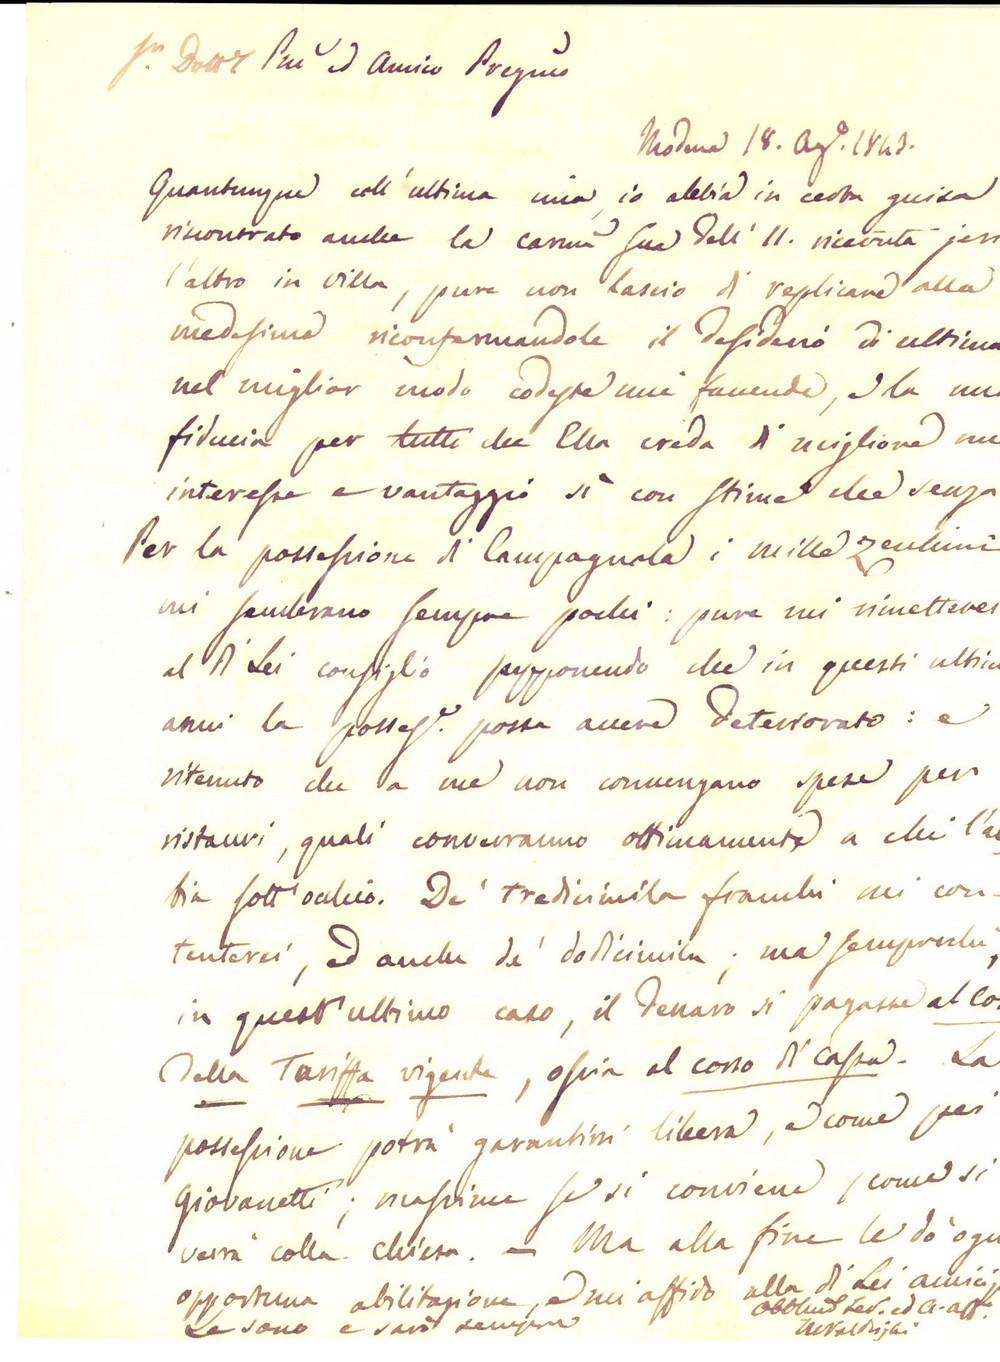 Sr. Dottr Pne ed Amico Pregmo
Modena 18. Agto. 1843.
Quantunque coll'ultima mia, io abbia in certa guisa
riscontrato anche la carma Sua dell' 11. ricevuta jeri
l'altro in villa, pure non lascio di replicare alla
medesima riconfermandole il desiderio di ultima
nel miglior modo codeste mie faccende, e la mia
fiducia per tutto che Ella creda di migliore mio
interesse e vantaggio sì con stima che senza
Per la possessione di Campagnola i mille zecchini
mi sembrano sempre pochi: pure mi rimetterei
al di Lei consiglio supponendo che in questi ultimi
anni la possess. possa avere deteriorato: e
ritenuto che a me non convengano spese per
ristauri, quali converranno ottimamente a chi l'ab
bia sott'occhio. De' tredicimila franchi mi con-
tenterei, ed anche de' dodicimila; ma semprechè,
in quest'ultimo caso, il denaro si pagasse al Cor
della Tariffa vigente, ossia al corso di Cassa. La
possessione potrà garantirsi libera, e come pei
Giovanetti; massime se si conviene, come si
verrà colla Chiesa. — Ma alla fine le dò ogni
opportuna abilitazione, e mi affido alla di Lei amiciz
Le sono e sarò sempre
Obblmo Ser. ed A. aff.